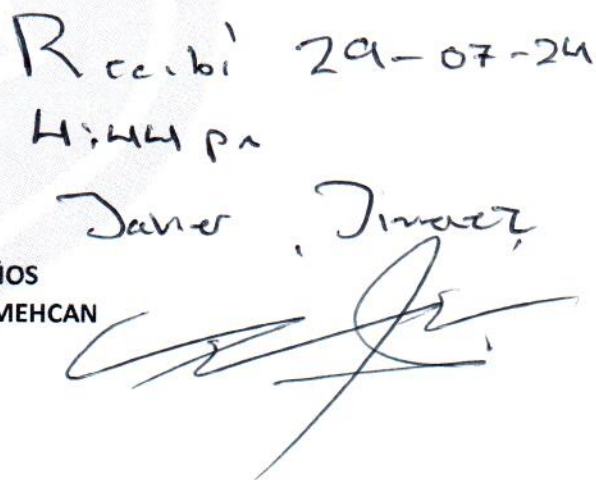 Recibí 29-07-24
4:44 pm
Javier Jimenez
ÑOS
MEHCAN